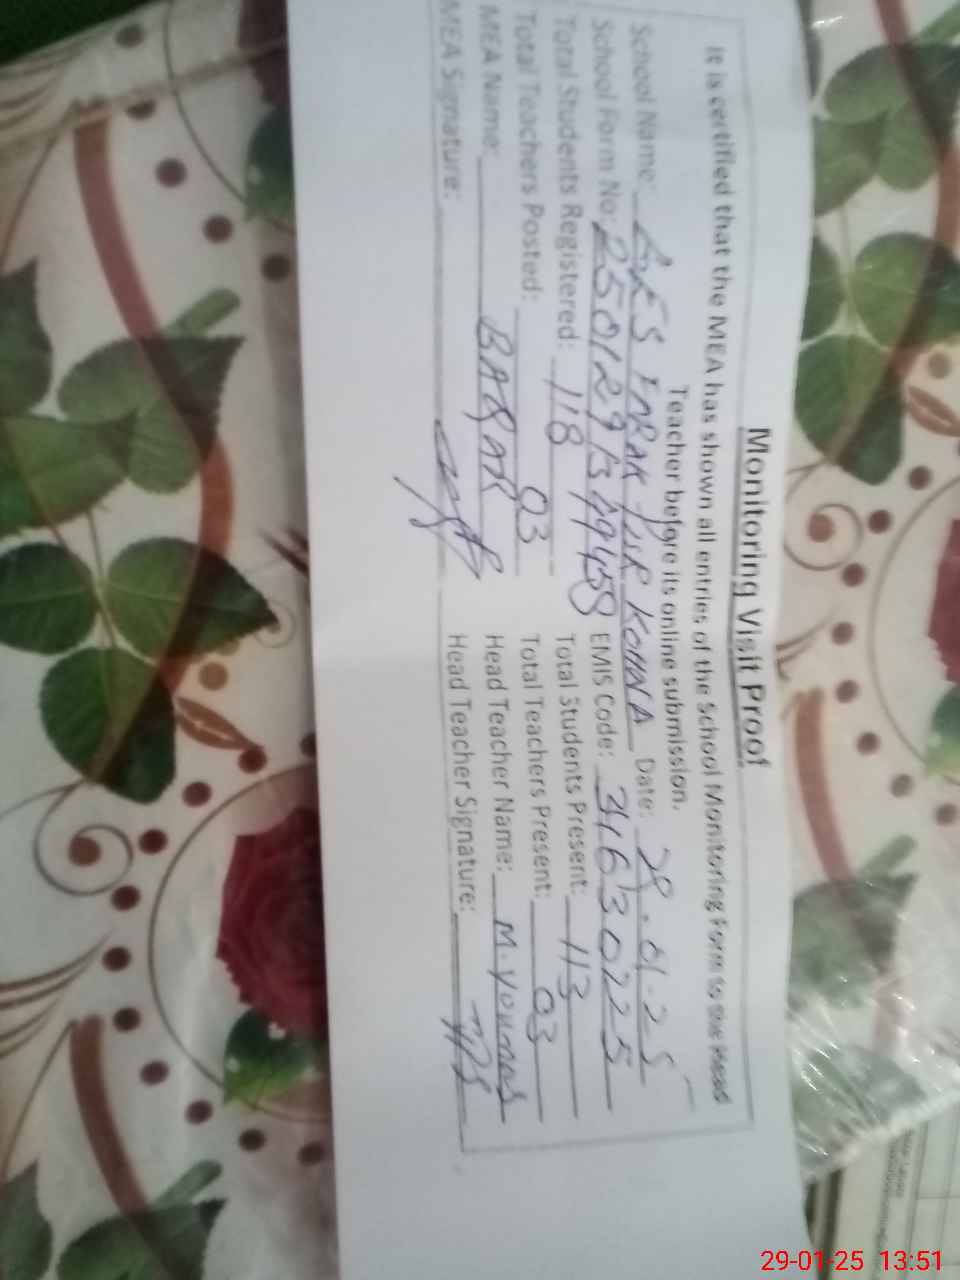 Monitoring Visit Proof
It is certified that the MEA has shown all entries of the School Monitoring Form to the Head
Teacher before its online submission.
School Name: KOHNA Date: 29.01.25
School Form No: EMIS Code: 31630225
Total Students Registered: 118 Total Students Present: 113
Total Teachers Posted: 03 Total Teachers Present: 03
MEA Name: BABAR Head Teacher Name: M. Younas
MEA Signature: Head Teacher Signature:
29-01-25 13:51